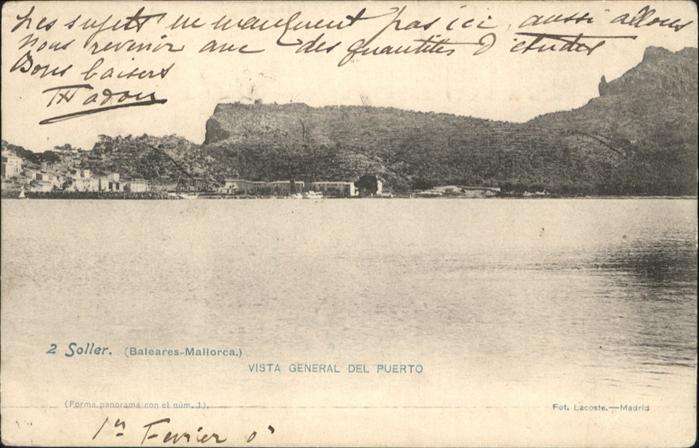 Les sujets ne manquent pas ici, aussi allons
nous revenir avec des quantités d'études
Bons baisers
2 Soller. (Baleares-Mallorca.)
VISTA GENERAL DEL PUERTO
(Forma panorama con el núm. 1).
Fot. Lacoste.—Madrid
1er Fevrier